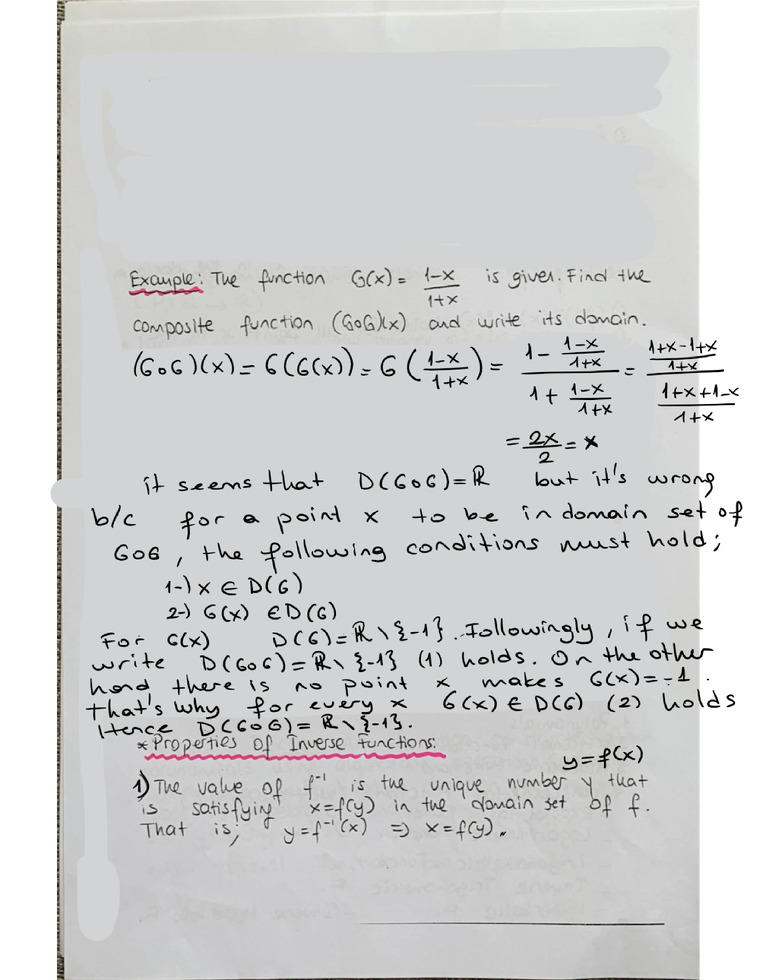 Example: The function G(x) = 1-x/1+x is given. Find the
composite function (GoG)(x) and write its domain.
(GoG)(x) = G(G(x)) = G(1-x/1+x) = (1 - 1-x/1+x)/(1 + 1-x/1+x) = (1+x-1+x/1+x)/(1+x+1-x/1+x)
= 2x/2 = x
it seems that D(GoG) = ℝ but it's wrong
b/c for a point x to be in domain set of
GoG, the following conditions must hold;
1-) x ∈ D(G)
2-) G(x) ∈ D(G)
For G(x) D(G) = ℝ \ {-1}. Followingly, if we
write D(GoG) = ℝ \ {-1} (1) holds. On the other
hand there is no point x makes G(x) = -1.
that's why for every x G(x) ∈ D(G) (2) holds
Hence D(GoG) = ℝ \ {-1}.
* Properties of Inverse Functions:
y = f(x)
1) The value of f⁻¹ is the unique number y that
is satisfying x = f(y) in the domain set of f.
That is; y = f⁻¹(x) ⇒ x = f(y).